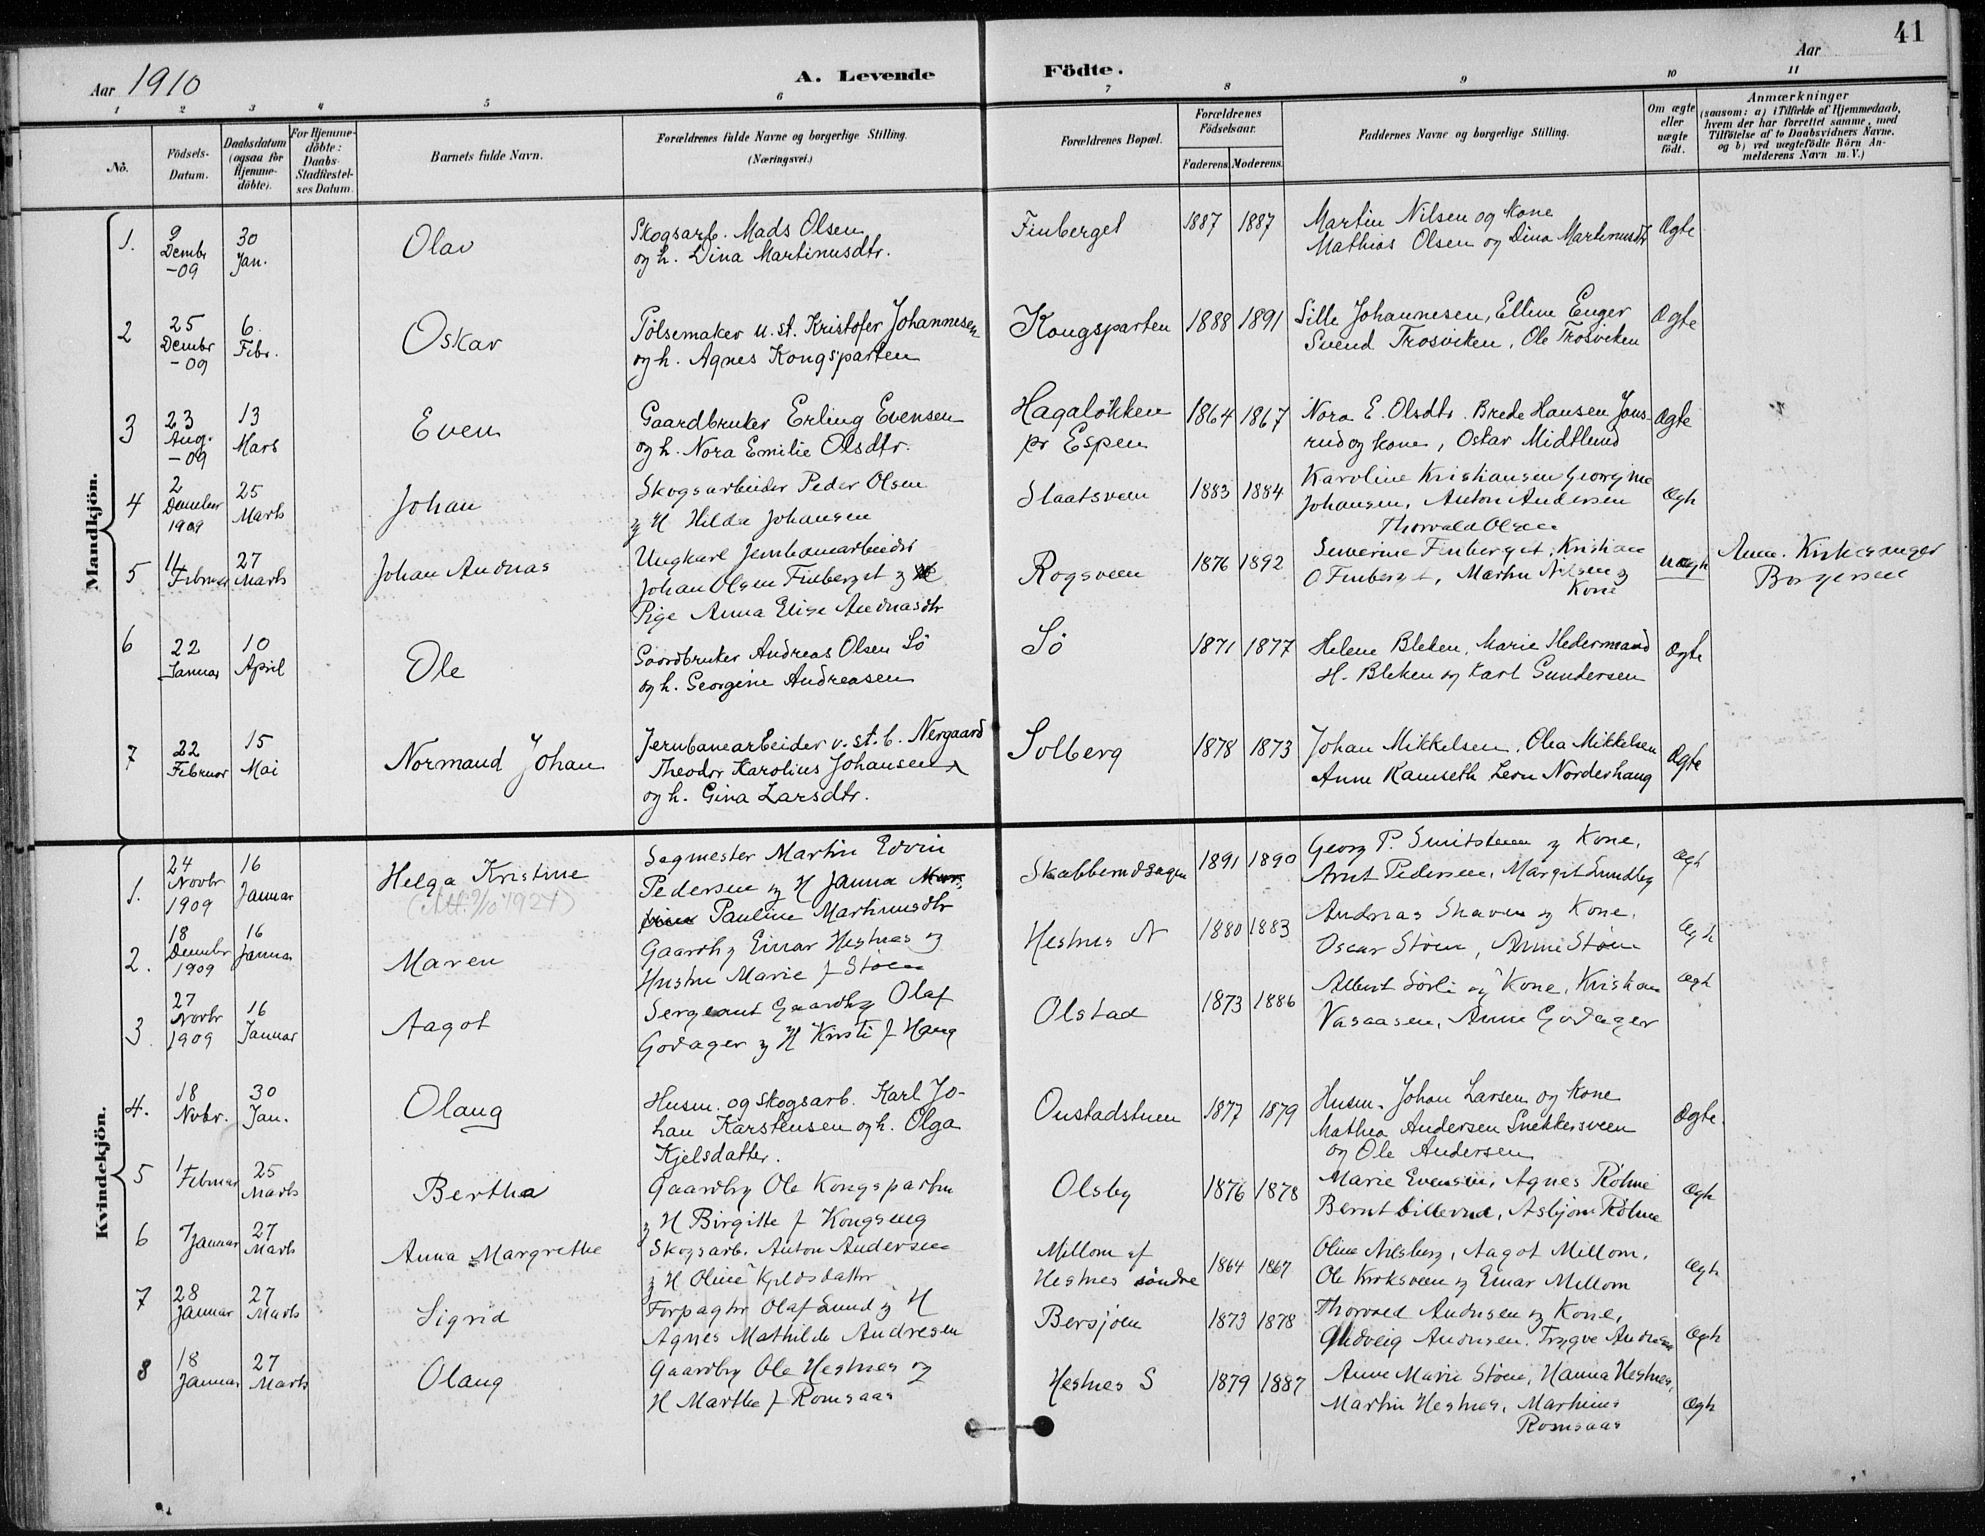 41
Aar 1910
A. Levende
Fødte.
Aar
1 2 3 4 5 6 7 8 9 10 11
No.
Födsels-
Datum.
Daabsdatum
(ogsaa for
Hjemme-
döbte).
For Hjemme-
döbte:
Daabs-
Stadfæstel-
ses Datum.
Barnets fulde Navn.
Forældrenes fulde Navne og borgerlige Stilling.
(Næringsvei.)
Forældrenes Bopæl.
Forældrenes
Födselsaar.
Faderens. Moderens.
Faddernes Navne og borgerlige Stilling.
Om ægte
eller
uægte
født.
Anmærkninger
(saasom: a) i Tilfælde af Hjemmedaab,
hvem der har forrettet samme, med
Tilföielse af to Daabsvidners Navne,
og b) ved uægtefödte Börn An-
melderens Navn m. V.)
Mandkjön.
1. 9 Dembr -09 30 Jan. Olav
Skogsarb. Mads Olsen
og h. Dina Martinusdtr.
Finberget 1887 1887
Martin Nilsen og Kone
Mathias Olsen og Dina Martinusdtr
Ægte
2 25 Dembr -09 6 Febr. Oskar
Pølsemaker u.st. Kristofer Johannesen
og h. Agnes Kongsparten
Kongsparten 1888 1891
Sille Johannesen, Elline Enger
Svend Trosviken, Ole Trosviken
Ægte
3 23 Aug. -09 13 Mars Even
Gaardbruker Erling Evensen
og h. Nora Emilie Olsdtr.
Hagaløkken
pr Espen
1864 1867
Nora E. Olsdtr. Brede Hansen Jons-
rud og kone, Oskar Midtlund
Ægte
4 2 Dember 1909 25 Marts Johan
Skogsarbeider Peder Olsen
og H Hilda Johansen
Slaatsveen 1883 1884
Karoline Kristiansen Georgine
Johansen, Anton Andersen
Thorvald Olsen
Ægte
5 11 Februar 27 Marts Johan Andreas
Ungkarl Jernbanearbeider
Johan Olsen Finberget og
Pige Anna Elise Andreasdtr
Rogsveen 1876 1892
Severine Finberget, Kristian
O Finberget, Martin Nilsen og
Kone
uægte
Anm. Kirkesanger
Borgersen
6 22 Januar 10 April Ole
Gaardbruker Andreas Olsen Sø
og h. Georgine Andreasen
Sø 1871 1877
Helene Bleken, Marie Hedermand
H. Bleken og Karl Gundersen
Ægte
7 22 Februar 15 Mai Normand Johan
Jernbanearbeider v. st. b. Nergaard
Theodor Karolius Johansen
og h. Gina Larsdtr.
Solberg 1878 1873
Johan Mikkelsen, Olea Mikkelsen
Anne Ramseth Leon Norderhaug
Ægte
Kvindekjön.
1. 24 Novbr 1909 16 Januar Helga Kristine
Sagmester Martin Edvin
Pedersen og H Janna
Pauline Martinusdtr
1891 1890
Georg P. Smitsteen og Kone,
Arnt Pedersen, Margit Lundby
Ægte
2. 18 Dembr 1909 16 Januar Maren
Gaardbr Einar Hestnes og
Hustru Marie f Støen
Hestnes N 1880 1883
Andreas Skaven og Kone,
Oscar Støen, Anne Støen
Ægte
3 27 Novbr 1909 16 Januar Aagot
Sergeant Gaardbr Olaf
Godager og H Kristi f Haug
Olstad 1873 1886
Albert Sørli og Kone, Kristian
Vasaasen, Anne Godager
Ægte
4. 18 Novbr. 30 Jan. Olaug
Husm. og skogsarb. Karl Jo-
han Karstensen og h. Olga
Kjelsdatter.
Onstadstuen 1877 1879
Husm. Johan Larsen og kone
Mathea Andersen Snekkersveen
og Ole Andersen
Ægte.
5 1 Februar 25 Marts Bertha
Gaardbr Ole Kongsparten
og H Birgitte f Kongseng
Olsby 1876 1878
Marie Evensen, Agnes Røhne
Bernt Lillerud, Asbjørn Røhne
Ægte
6 7 Januar 27 Marts Anna Margrethe
Skogsarb. Anton Andersen
og H Oline Kjeldsdatter
Mellom af
Hestnes søndre
1864 1867
Oline Nilsberg, Aagot Millom,
Ole Kroksveen og Einar Millom
Ægte
7 28 Januar 27 Marts Sigrid
Forpagter Olaf Lund og H
Agnes Mathilde Andresen
Bersjøen 1873 1878
Thorvald Andresen og Kone,
Gudveig Andresen. Trygve Andresen
Ægte
8 18 Januar 27 Marts Olaug
Gaardbr Ole Hestnes og
H Marthe f Romsaas
Hestnes S 1879 1887
Anne Marie Støen, Hanna Hestnes,
Martin Hestnes, Martinus
Romsaas
Ægte